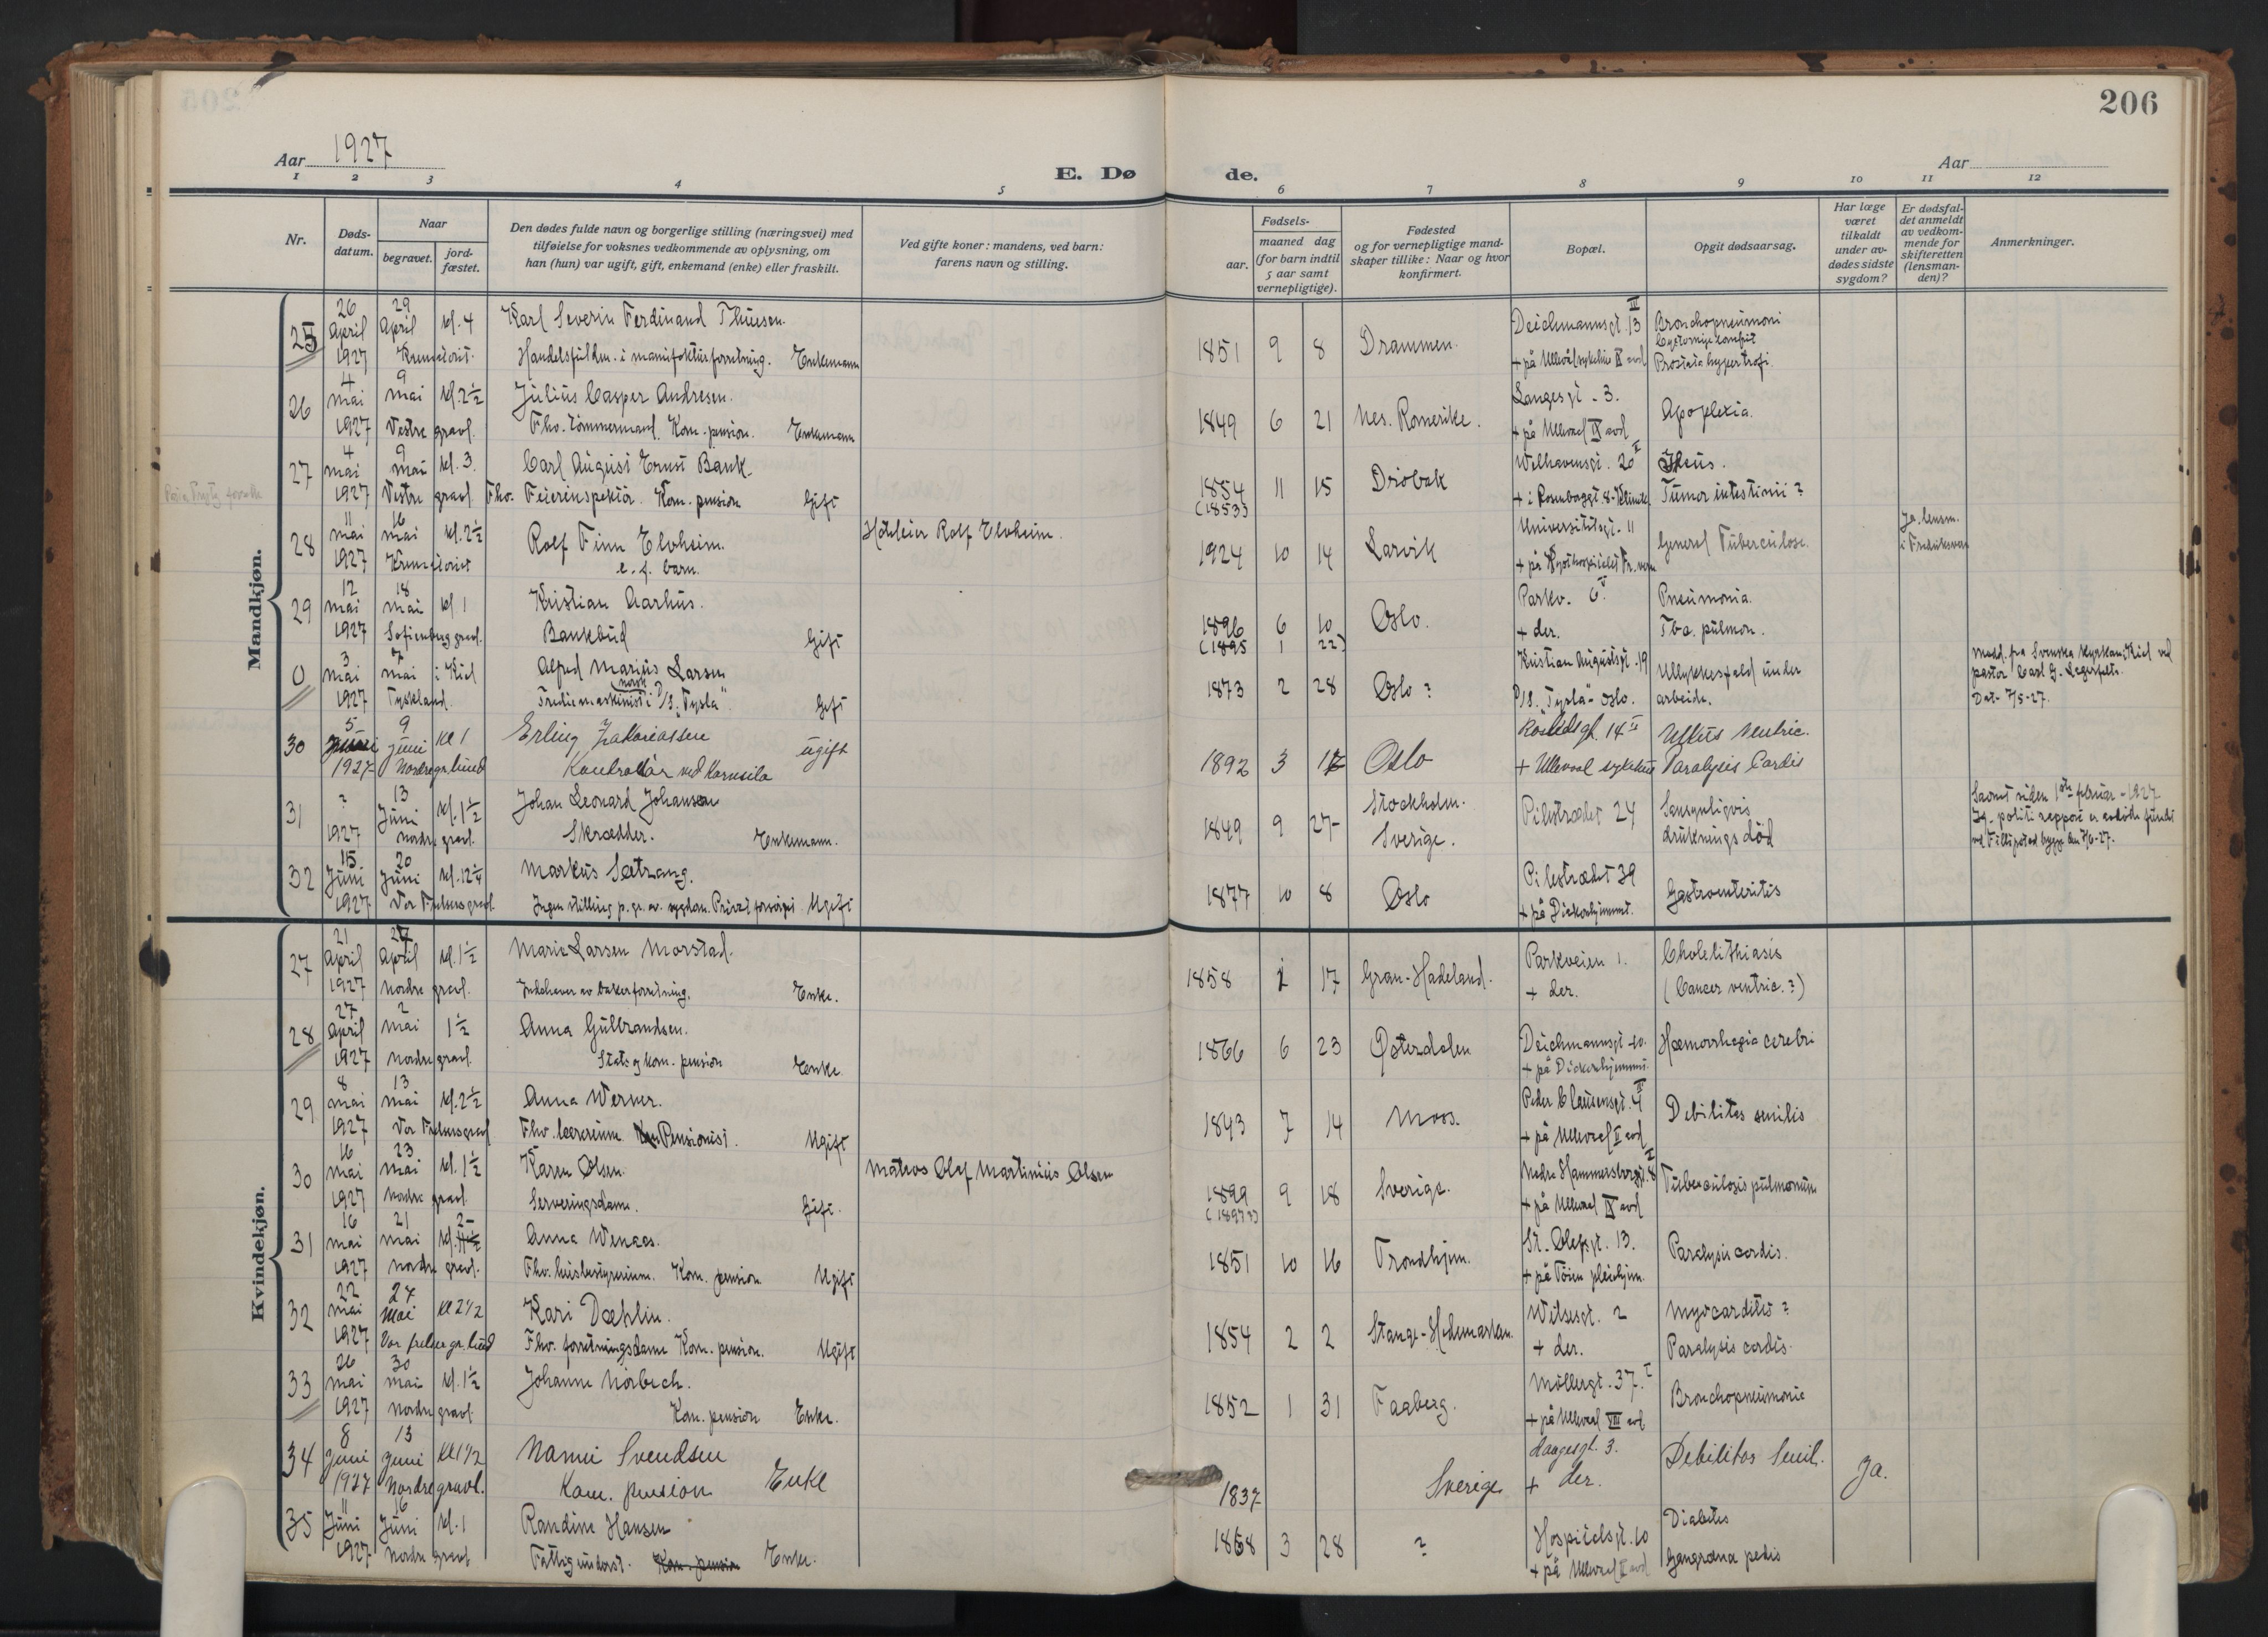 206
Aar 1927
E. Døde.
Aar
1 2 3 4 5 6 7 8 9 10 11 12
Nr.
Døds-datum.
Naar
begravet.
jord-fæstet.
Den dødes fulde navn og borgerlige stilling (næringsvei) med
tilføielse for voksnes vedkommende av oplysning, om
han (hun) var ugift, gift, enkemand (enke) eller fraskilt.
Ved gifte koner: mandens, ved barn:
farens navn og stilling.
Fødsels-
aar.
maaned dag
(for barn indtil
5 aar samt
vernepligtige).
Fødested
og for vernepligtige mand-
skaper tillike: Naar og hvor
konfirmert.
Bopæl.
Opgit dødsaarsag.
Har læge
været
tilkaldt
under av-
dødes sidste
sygdom?
Er dødsfal-
det anmeldt
av vedkom-
mende for
skifteretten
(lensman-
den)?
Anmerkninger.
Mandkjøn.
25 26 April 1927 29 April kl. 4 Krematoriet.
Karl Severin Ferdinand Thuesen.
Handelsfuldm. i manufakturforretning. Enkemann
1851 9 8 Drammen.
Deichmannsgt. 13 IV
+ på Ullevål sykehus avd
Bronchopneumoni
Prostatahypertrofi.
26 4 mai 1927 9 mai kl. 2½ Vestre gravl.
Julius Casper Andresen.
Fhv. Tömmermand. Kom. pension. Enkemann
1849 6 21 Nes. Romerike.
Langesgt. 3.
+ på Ullevaal IX avd
Apoplexia.
27 4 mai 1927 9 mai kl. 3. Vestre gravl.
Carl August Ernst Bank.
Fhv. Feierinspektör. Kom. pension Gift
1854 (1853) 11 15 Dröbak
Welhavensgt. 20 I
+ i Rosenborggt 8. Klinik
Ileus.
Tumor intestinii?
28 11 mai 1927 16 mai kl. 2½ Krematoriet
Rolf Finn Elvheim.
e. f. barn.
Hoteleier Rolf Elvheim.
1924 10 14 Larvik
Universitetsgt. 11
+ på Kysthospitalet Fr. vern
General Tuberculose.
Ja. lensm.
i Fredriksvern
29 12 mai 1927 18 mai kl. 1 Sofienberg gravl.
Kristian Aarhus.
Bankbud Gift
1896 6 10 Oslo.
(1895 1 22)
Parkv. 6 V.
+ der.
Pneumonia.
Tba. pulmon.
0 3 mai 1927 7 mai i Kiel Tyskland.
Alfred Marius Larsen
Tredie maskinist i norsk D/S. "Tysla". Gift
1873 2 28 Oslo?
Kristian Augustsgt. 19
D/S. "Tysla" Oslo.
Ulykkesfald under
arbeide.
Medd. fra Svenska Kyrkan i Kiel ved
pastor Carl G. Lagerfelt.
Dat. 7/5-27.
30 5 juni 1927 9 juni kl 1 Nordre gr. lund
Erling Zakariassen
Kontrollör ved Kornsilo ugift
1892 3 17 Oslo
gt. 14 II
+ Ullevaal sykehus
Ulkus Ventric.
Paralysis Cordis
31 ? 1927 13 Juni kl. 1½ Nordre gravl.
Johan Leonard Johansen
Skrædder. Enkemann.
1849 9 27 Stockholm.
Sverige.
Pilestrædet 24
Sansynligvis
drukningsdöd
Savnet siden 1ste februar 1927.
Ifg. politi rapport er avdöde fundet
ved Fillipstad brygge den 7/6-27.
32 15 Juni 1927 20 Juni kl. 12¼ Vor Frelsers gravl
Markus Sætrang.
Ingen stilling p. gr. av. sygdom. Privat forsörget Ugift
1877 10 8 Oslo
Pilestrædet 39
+ på Diakonhjemmet.
Gastroenteritis
Kvindekjøn.
27 21 April 1927 27 April kl. 1½ Nordre gravl.
Marie Larsen Morstad.
Indehaver av bakerforretning. Enke.
1858 17 Gran-Hadeland.
Parkveien 1.
+ der.
Cholelithiasis
(Cancer ventric.?)
28 27 April 1927 2 mai 1½ Nordre gravl
Anna Gulbrandsen.
Stats og kom. pension Enke.
1866 6 23 Østerdalen
Deichmannsgt. 10.
+ på Diakonhjemmet.
Hæmorrhagia cerebri
29 8 mai 1927 13 mai kl. 2½ Vor Frelsers gravl
Anna Werner.
Fhv. lærerinne Pensionist. Ugift
1843 7 14 Moss.
Peder Claussensgt. 4 II
+ på Ullevaal avd
Debilitas senilis
30 16 mai 1927 23 mai kl. 1½ Nordre gravl
Karen Olsen.
Serveringsdame. Gift.
Matros Olaf Martinius Olsen
1899 (1897?) 9 18 Sverige.
Nedre Hammersborggt. 8
+ på Ullevaal IX avd
Tuberculosis pulmonum
31 16 mai 1927 21 mai kl. 2 Nordre gravl.
Anna Wenaas.
Fhv. husbestyrerinne. Kom. pension Ugift
1851 10 16 Trondhjem.
St. Olafsgt. 13.
+ på Töien pleiehjem.
Paralysis cordis.
32 22 mai 1927 27 mai kl 2½ Vor frelser gr. lund
Kari Dæhlin.
Fhv. forretningsdame Kom. pension. Ugift
1854 2 2 Stange-Hedemarken.
Wilsesgt. 2
+ der.
Myocarditis?
Paralysis cordis.
33 26 mai 1927 30 mai kl. 1½ Nordre gravl.
Johanne Nörbech.
Kom. pension Enke.
1852 1 31 Faaberg.
Möllergt. 37. I
+ på Ullevaal VIII avd
Bronchopneumonie
34 8 juni 1927 13 juni kl 1½ Nordre gravl.
Nanni Svendsen
Kom. pension Enke
1837 Sverige
Langesgt. 3.
+ der.
Debilitas Senil.
Ja.
35 11 Juni 1927 16 Juni kl. 1 Nordre gravl
Randine Hansen
Fattigunderst. Kom. pension Enke.
1868 3 28 ?
Hospitalsgt. 10
+ på Ullevaal avd
Diabetes
Gangræna pedis